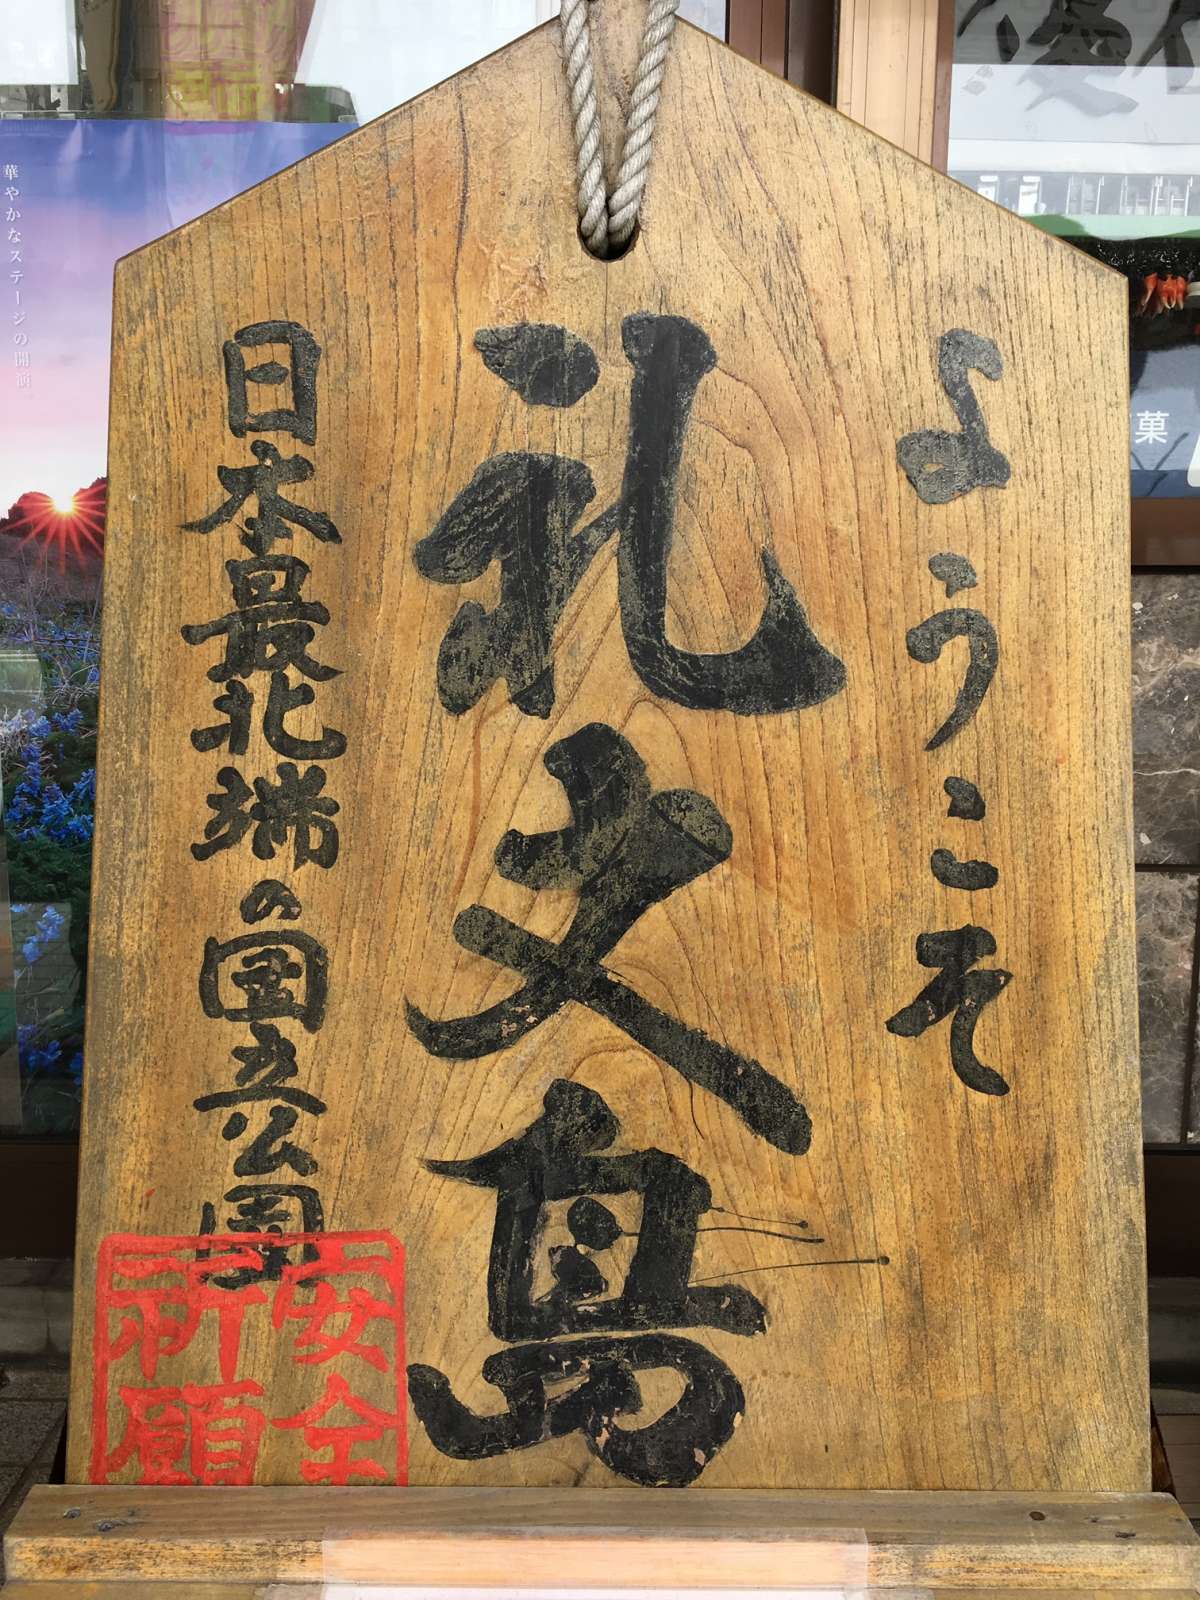 ようこそ
礼文島
日本最北端の国立公園
安全
祈願
華やかなステージの開演
菓